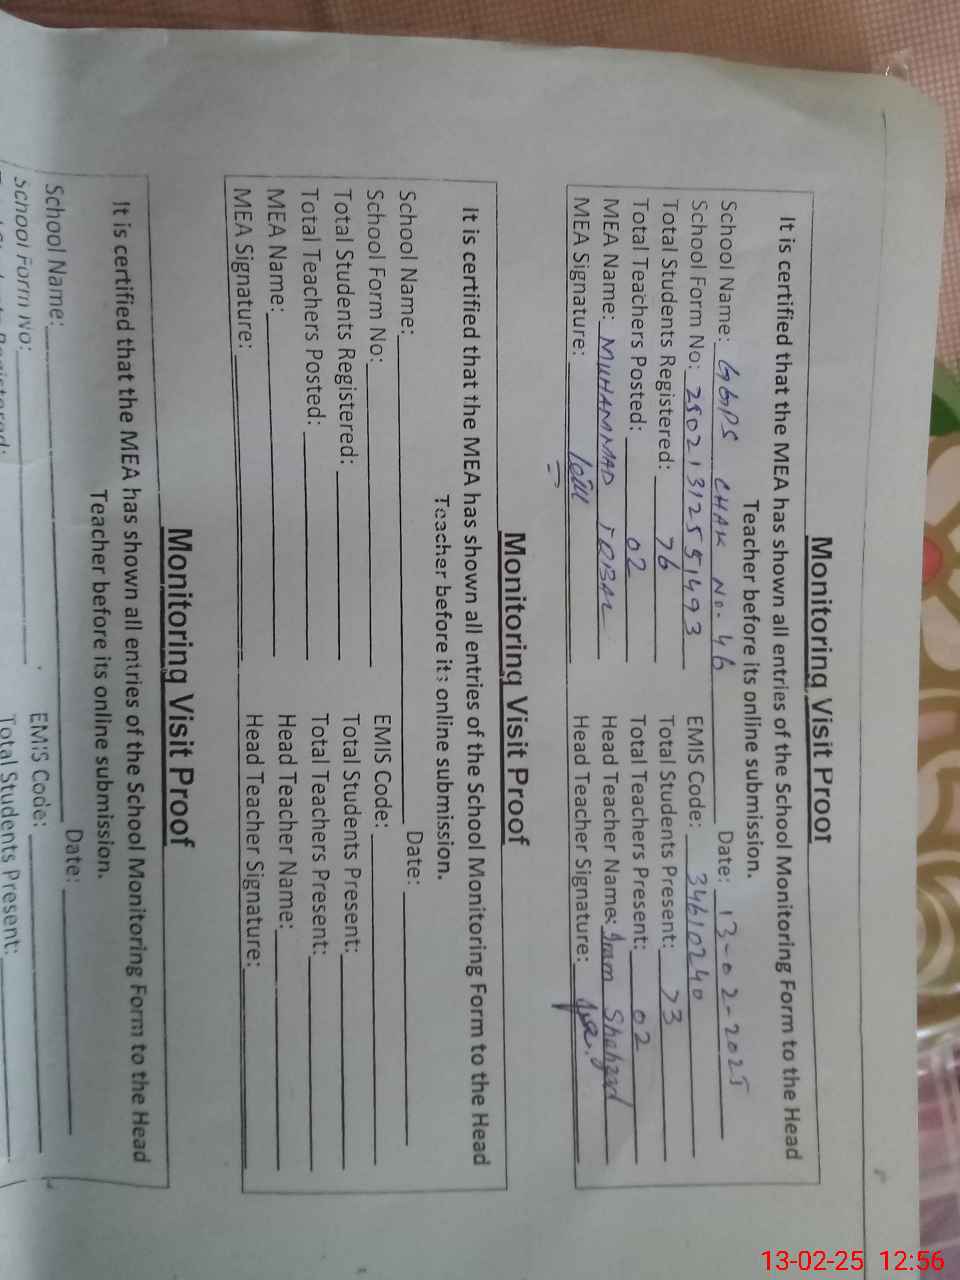 Monitoring Visit Proof
It is certified that the MEA has shown all entries of the School Monitoring Form to the Head
Teacher before its online submission.
School Name: GGPS CHAK No. 46 Date: 13-02-2025
School Form No: 25021312551493 EMIS Code: 34610240
Total Students Registered: 76 Total Students Present: 73
Total Teachers Posted: 02 Total Teachers Present: 02
MEA Name: MUHAMMAD IQBAL Head Teacher Name: Iram Shahzad
MEA Signature: Head Teacher Signature:
Monitoring Visit Proof
It is certified that the MEA has shown all entries of the School Monitoring Form to the Head
Teacher before its online submission.
School Name: Date:
School Form No: EMIS Code:
Total Students Registered: Total Students Present:
Total Teachers Posted: Total Teachers Present:
MEA Name: Head Teacher Name:
MEA Signature: Head Teacher Signature:
Monitoring Visit Proof
It is certified that the MEA has shown all entries of the School Monitoring Form to the Head
Teacher before its online submission.
School Name: Date:
School Form No: EMIS Code:
Total Students Registered: Total Students Present:
13-02-25 12:56